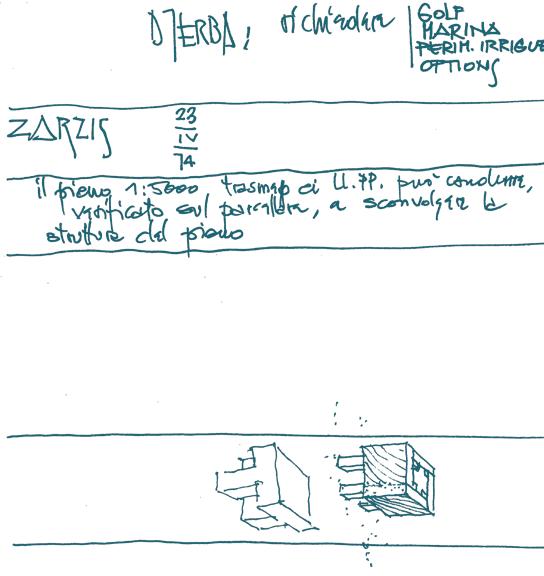 DJERBA: richiedere
GOLF
MARINA
PERIM. IRRIGUE
OPTIONS
ZARZIS
23
IV
74
il piano 1:5000, trasmesso ai LL.PP. può condurre,
verificato sul parcellare, a sconvolgere la
struttura del piano